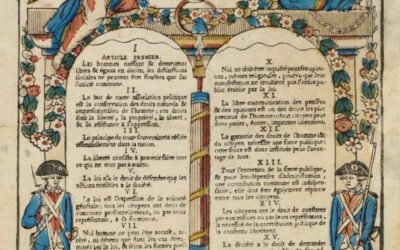 I
ARTICLE PREMIER.
Les hommes naissent & demeurent
libres & égaux en droits, les distinctions
sociales ne peuvent être fondées que sur
l'utilité commune.
II.
Le but de toute association politique
est la conservation des droits naturels &
imprescriptibles de l'homme; ces droits
sont la liberté, la propriété, la sûreté,
& la résistance à l'oppression.
III.
Le principe de toute souveraineté réside
essentiellement dans la nation.
IV.
La liberté consiste à pouvoir faire tout
ce qui ne nuit pas à autrui.
V.
La loi n'a le droit de défendre que les
actions nuisibles à la société.
VI.
La loi est l'expression de la volonté
générale; tous les citoyens ont droit de
concourir personnellement, ou par leurs
représentans, à sa formation.
VII.
Nul homme ne peut être accusé, arrêté,
ni détenu que dans les cas déterminés
par la loi, & selon les formes
X.
Nul ne doit être inquiété pour ses opinions,
mêmes religieuses, pourvu que leur
manifestation ne trouble pas l'ordre public
établi par la loi.
XI.
La libre communication des pensées
& des opinions est un des droits les plus
précieux de l'homme: tout citoyen peut
donc parler, écrire, imprimer librement.
XII.
La garantie des droits de l'homme & du
citoyen nécessite une force publique;
cette force est donc instituée pour l'avantage
de tous.
XIII.
Pour l'entretien de la force publique,
& pour les dépenses d'administration, une
contribution commune est indispensable;
elle doit être également répartie
entre tous les citoyens
XIV.
Les citoyens ont le droit de constater
par eux mêmes ou par leurs représentans, la
nécessité de la contribution publique
XV.
La société a le droit de demander